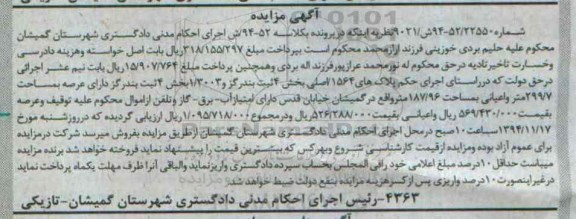 آگهی مزایده
شماره ۹۴-۵۲/۲۲۵۵۰ش/۹۰۲۱نظریه اینکه در پرونده بکلاسه ۵۲-۹۴/ش اجرای احکام مدنی دادگستری شهرستان گمیشان
محکوم علیه حلیم بردی خوزینی فرزند ارازمحمد محکوم است بپرداخت مبلغ ۳۱۸/۱۵۵/۲۹۷ریال بابت اصل خواسته وهزینه دادرسی
وخسارت تاخیرتادیه درحق محکوم له نورمحمد عرازپورفرزند اله بردی وهمچنین پرداخت مبلغ ۱۵/۹۰۷/۷۶۴ریال بابت نیم عشر اجرائی
درحق دولت که درراستای اجرای حکم پلاک های ۱۵۶۴اصلی بخش ۴ثبت بندرگز و۱/۳۰۰۳بخش ۴ثبت بندرگز دارای عرصه بمساحت
۲۹۹/۷متر واعیانی بمساحت ۱۸۷/۹۶ مترواقع در گمیشان خیابان قدس دارای امتیازآب- برق- گاز وتلفن ازاموال محکوم علیه توقیف وعرصه
بقیمت ۵۶۹/۴۳۰/۰۰۰ ریال واعیانی بقیمت ۵۲۶/۲۸۸/۰۰۰ ریال ودرمجموع ۱/۰۹۵/۷۱۸/۰۰۰ ریال ارزیابی گردیده که درروزشنبه مورخ
۱۳۹۴/۱۱/۱۷ساعت ۱۰صبح درمحل اجرای احکام مدنی دادگستری شهرستان گمیشان ازطریق مزایده بفروش میرسد شرکت درمزایده
برای عموم آزاد بوده ومزایده ازقیمت کارشناسی شروع وبهرکس که بیشترین قیمت را پیشنهاد نماید فروخته خواهد شد برنده مزایده
میبایست حداقل ۱۰درصد مبلغ اعلامی خود رافی المجلس بحساب سپرده دادگستری واریزنماید والباقی آنرا ظرف مهلت یکماه پرداخت نماید
درغیراینصورت ۱۰درصد واریزی پس ازکسرهزینه مزایده بنفع دولت ضبط خواهد شد.
۴۳۶۳-رئیس اجرای احکام مدنی دادگستری شهرستان گمیشان-تازیکی